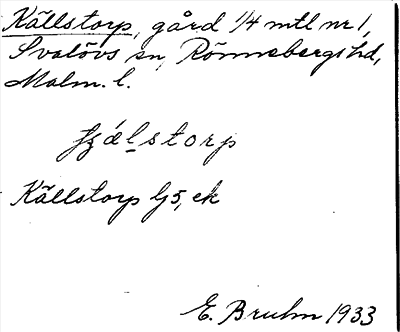 Källstorp, gård 1/4 mtl nr 1,
Svalövs sn, Rönnebergs hd,
Malm. l.
Källstorp G5, ek
E. Bruhn 1933